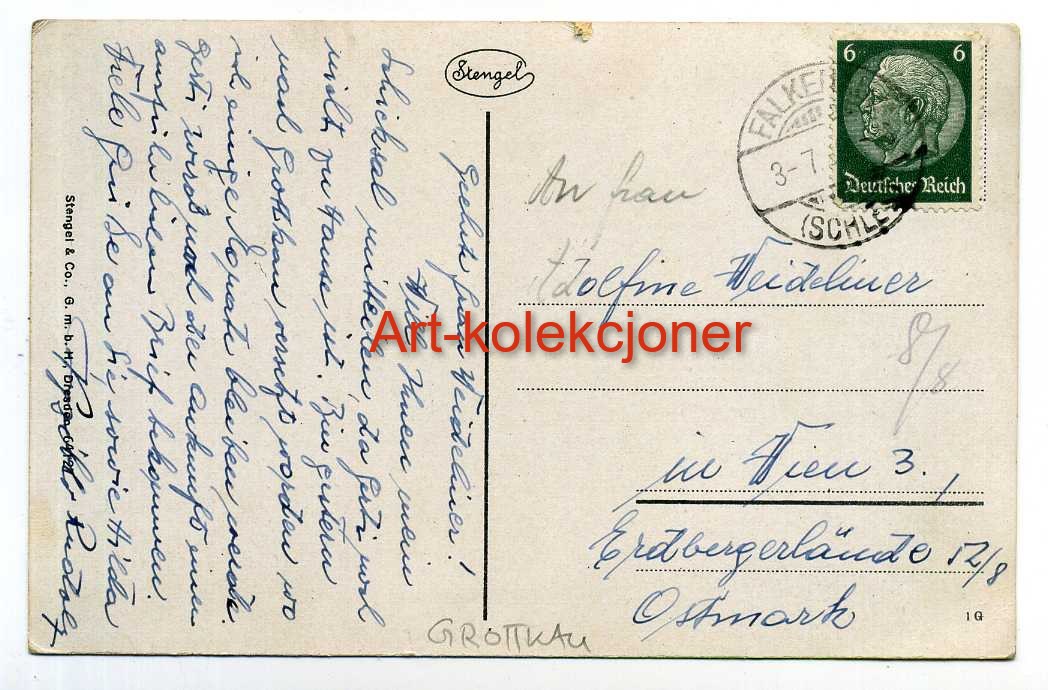 Stengel
Geehrte Frau Weidelmer!
Will Ihnen mein
Schicksal mitteilen, da Gesti wol
nicht zu Hause ist. Bin gestern
nach Grottkau versetzt worden wo
ich einige Monate bleiben werde.
Gesti wird nach der Ankunft einen
ausführlichen Brief bekommen.
Viele Grüße an Sie sowie Hilda
Rudolf
Stengel & Co., G. m. b. H., Dresden
6 6
Deutsches Reich
FALKEN
3-7
(SCHLES
An Frau
Adolfine Weidelmer
8/8
in Wien 3.,
Erdbergerlände 12/8
Ostmark
1 G
GROTTKAU
Art-kolekcjoner